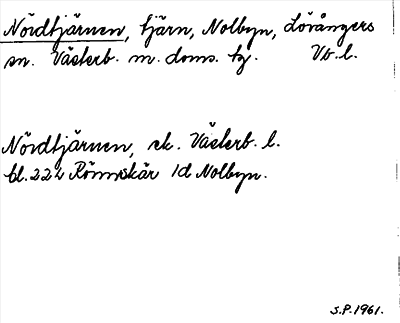 Nördtjärnen, tjärn, Nolbyn, Lövångers
sn. Västerb. m. doms. tg. Vb. l.
Nördtjärnen, ek. Västerb. l.
bl. 222 Rönnskär 1d Nolbyn.
S.P. 1961.